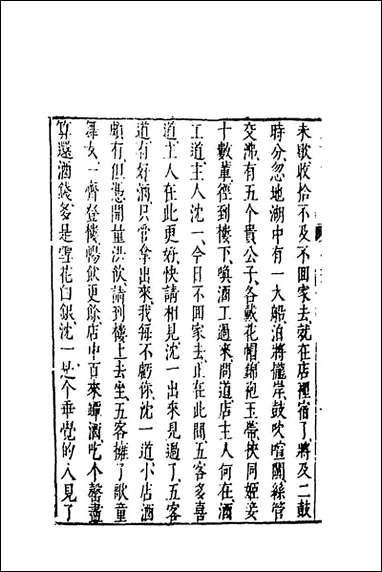 未歇收拾不及不回家去就在店裡宿了將及二鼓
時分忽地潮中有一大船泊將攏岸鼓吹喧闐絲管
交沸有五個貴公子各戴花帽錦袍玉帶俠同姬妾
十數輩徑到樓下喚酒工過來問道店主人何在酒
工道主人沈一今日不回家去止在此間五客多喜
道主人在此更好快請相見沈一出來見過了五客
道有好酒只管拿出來我每不虧你沈一道小店酒
頗有但憑開量洪飲請到樓上去坐五客擁了歌童
舞女一齊登樓暢飲更餘店中百來罈酒吃个罄盡
算還酒錢多是雪花白銀沈一是个乖覺的人見了